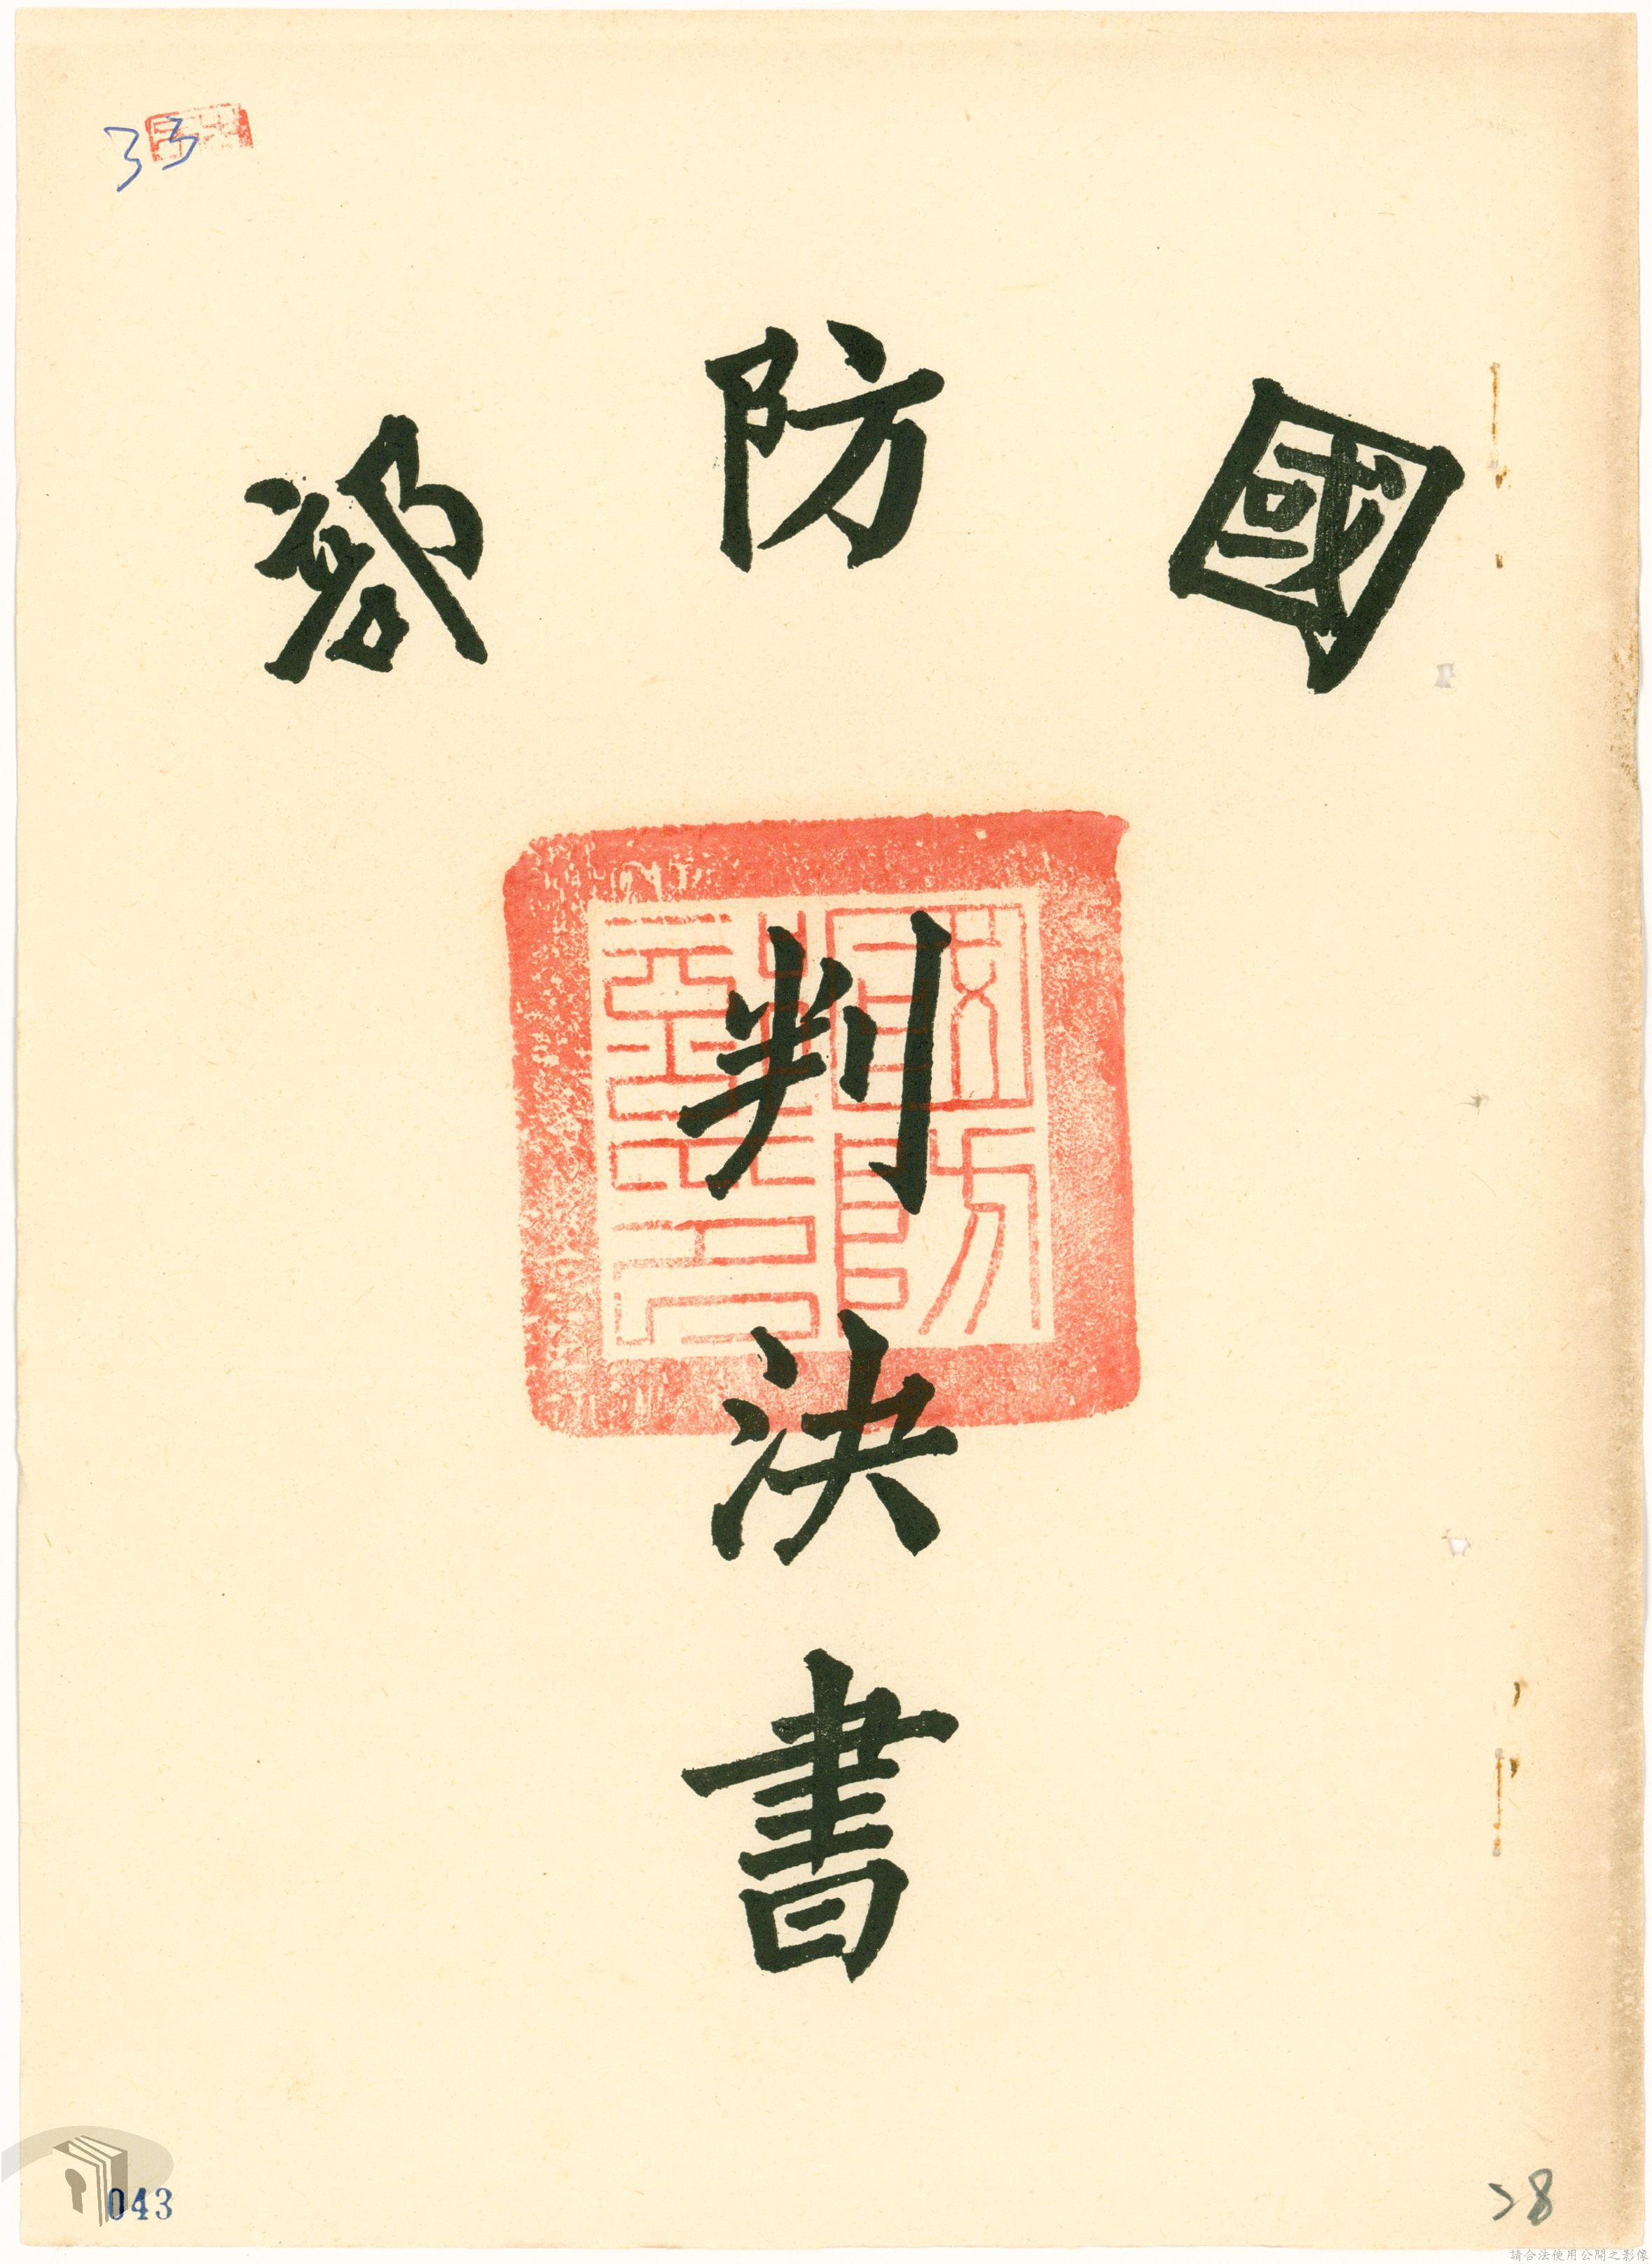 33
國防部
判決書
國防部印
043
28
請合法使用公開之影像